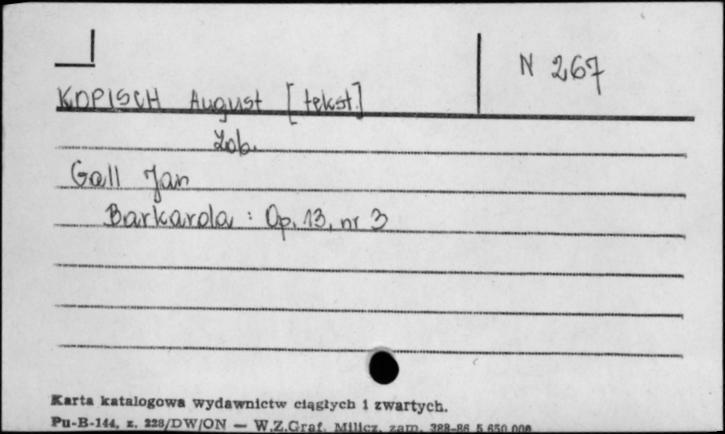 N 267
KOPISCH August [tekst.]
Zob.
Gall Jan
Barkarola : Op. 13, nr 3
Karta katalogowa wydawnictw ciągłych i zwartych.
Pu-B-144, z. 228/DW/ON — W.Z.Graf. Milicz, zam. 388-86 5 650 000